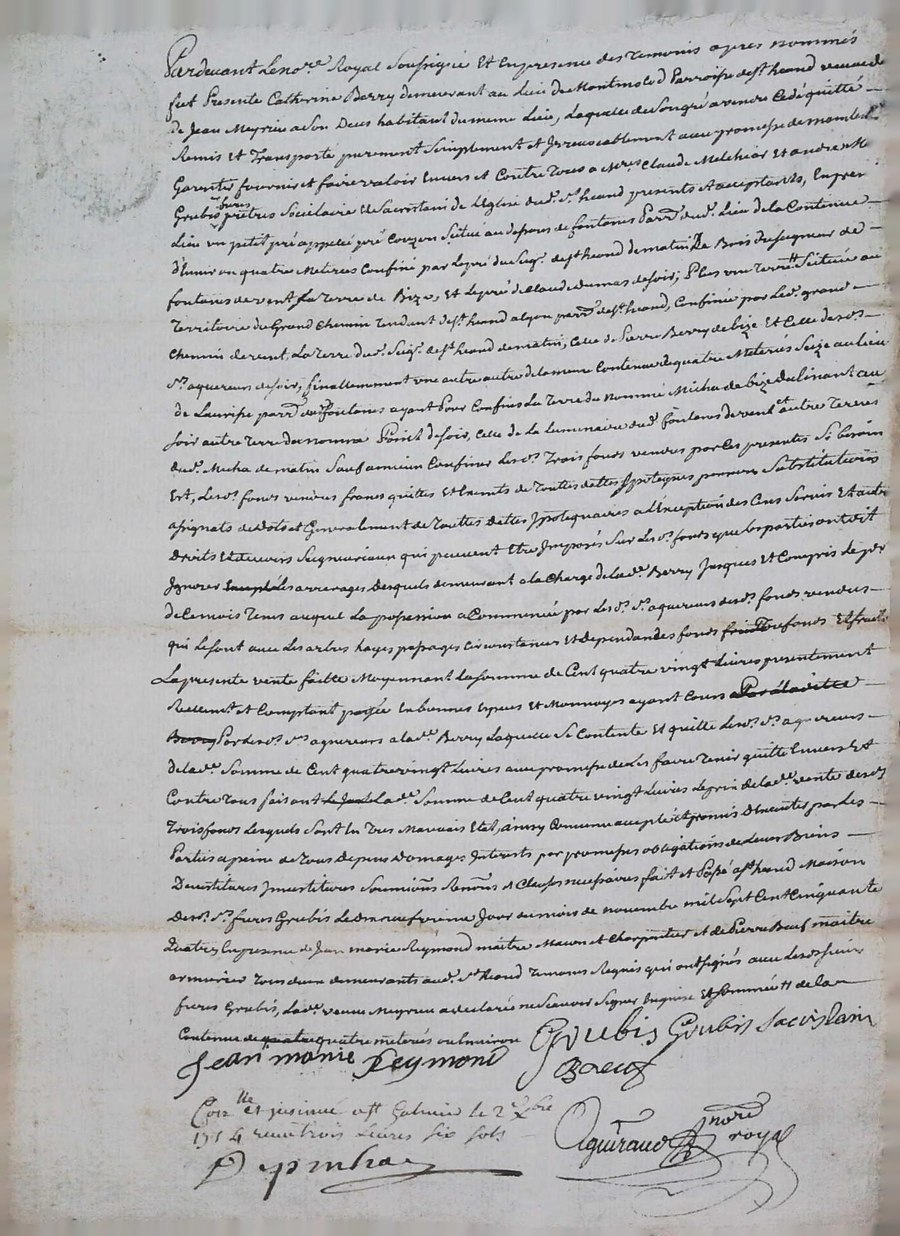 Pardevant Le no.re Royal Soussigné Et En presence des temoins apres nommés
fut Presente Catherine Berry demeurant au Lieu de Parroisse de st heand veuve de
de Jean Meyrieu a Son Deces habitant du meme Lieu, Laquelle de Son gré a vendu Cedé quitté
Remis Et Transporté purement Simplement et Irrevocablement avec promesse de
Garentir fournir et faire valoir Envers et Contre Tous a Claude Melchior Et andré
Grubis freres prêtres Societaire et Sacristain de L'Eglise dud. St heand presents et acceptants,
Lieu un petit pré appellé pré Couzon Scitue au dessous de fontanes Parr. dud. Lieu de la Contenue
d'Environ quatre Meterés Confiné par Le pré du Seig. de st heand de matin Le Bois du Seigneur de
fontanes de vent La Terre de Bize, Et Le pré de Claude dumas de soir; Plus une Terre Scituée au
Territoire du Grand Chemin Tendant de st heand a Lyon parr. de st heand, Confinée par Led. grand
Chemin de vent, La Terre dud. Seig. de st heand de matin, Celle de Pierre Berry de bize Et Celle desd.
Srs aquereurs de soir; finallemment une autre autre de la meme Contenue de quatre Meterés Seize au Lieu
de parr. dud. fontanes ayant Pour Confins La Terre du nommé Micha de bize du
soir autre Terre du nommé de soir, Celle de La Luminaire dud. fontanes de vent et autre Terre
dud. Micha de matin Sauf a mieux Confiner Lesd. Trois fonds vendus par Ces presentes Si besoin
Est, Lesd. fonds vendus francs quittes Et Exempts de Touttes dettes Substitutions
et Generalment de Touttes dettes Ipotequaires a L'Exeption des Cens Servis Et autre
Droits Et devoirs Seigneuriaux qui peuvent Etre Imposés Sur Lesd. fonds que Les parties ont dit
Ignorer Les arrerages Desquels demeurant a la Charge de lad. Berry Jusques Et Compris Le
de Ce mois Tems auquel La possession a Commencé par Lesd. Srs aquereurs desd. fonds vendus
qui Le sont avec Les arbres hayes passages Circonstances Et dependances fonds fonds Et fruits
La presente vente faitte Moyennant La somme de Cent quatre vingt Livres presentement
Reellem.t et Comptant payée En bonnes Especes Et Monnoyes ayant Cours
Par Lesd. Srs aquereurs a lad. Berry Laquelle Se Contente Et quitte Lesd. Srs aquereurs
de lad. Somme de Cent quatre vingt Livres avec promesse de Les faire Tenir quitte Envers Et
Contre Tous faisant Lad. Somme de Cent quatre vingt Livres Le prix de lad. vente desd.
Trois fonds Lesquels Sont En Tres Mauvais Etat, ainsy Convenu accepté et promis D'Executer par Les
Parties a peine de Tous Depens Domages Interets par promesses obligations de Leurs Biens
Devestitures Investitures Soumions Renons et Clauses necessaires fait et Passé a st heand Maison
Desd. Srs freres Grubis Le Dix neufvieme Jour du mois de novembre mil Sept Cent Cinquante
Quatre, En presence de Jean marie Reymond maitre Macon et Charpentier et de Pierre Beuf maitre
armurier Tous deux demeurants aud. St heand Temoins Requis qui ont signés avec Lesd. Sieurs
freres Grubis, Lad. veuve Meyrieu a declaré ne Scavoir Signer Enquise Et Sommée de la
Contenue de quatre quatre meterés ou Environ
Grubis Grubis Sacristain
Jean marie Reymond
Boeuf
Con.lle et insinué a st Galmier le
1754 livres six sols
Aguiraud nore royal